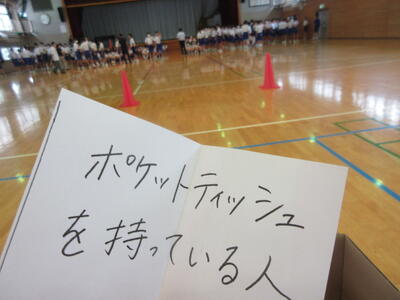 ポケットティッシュ
を持っている人